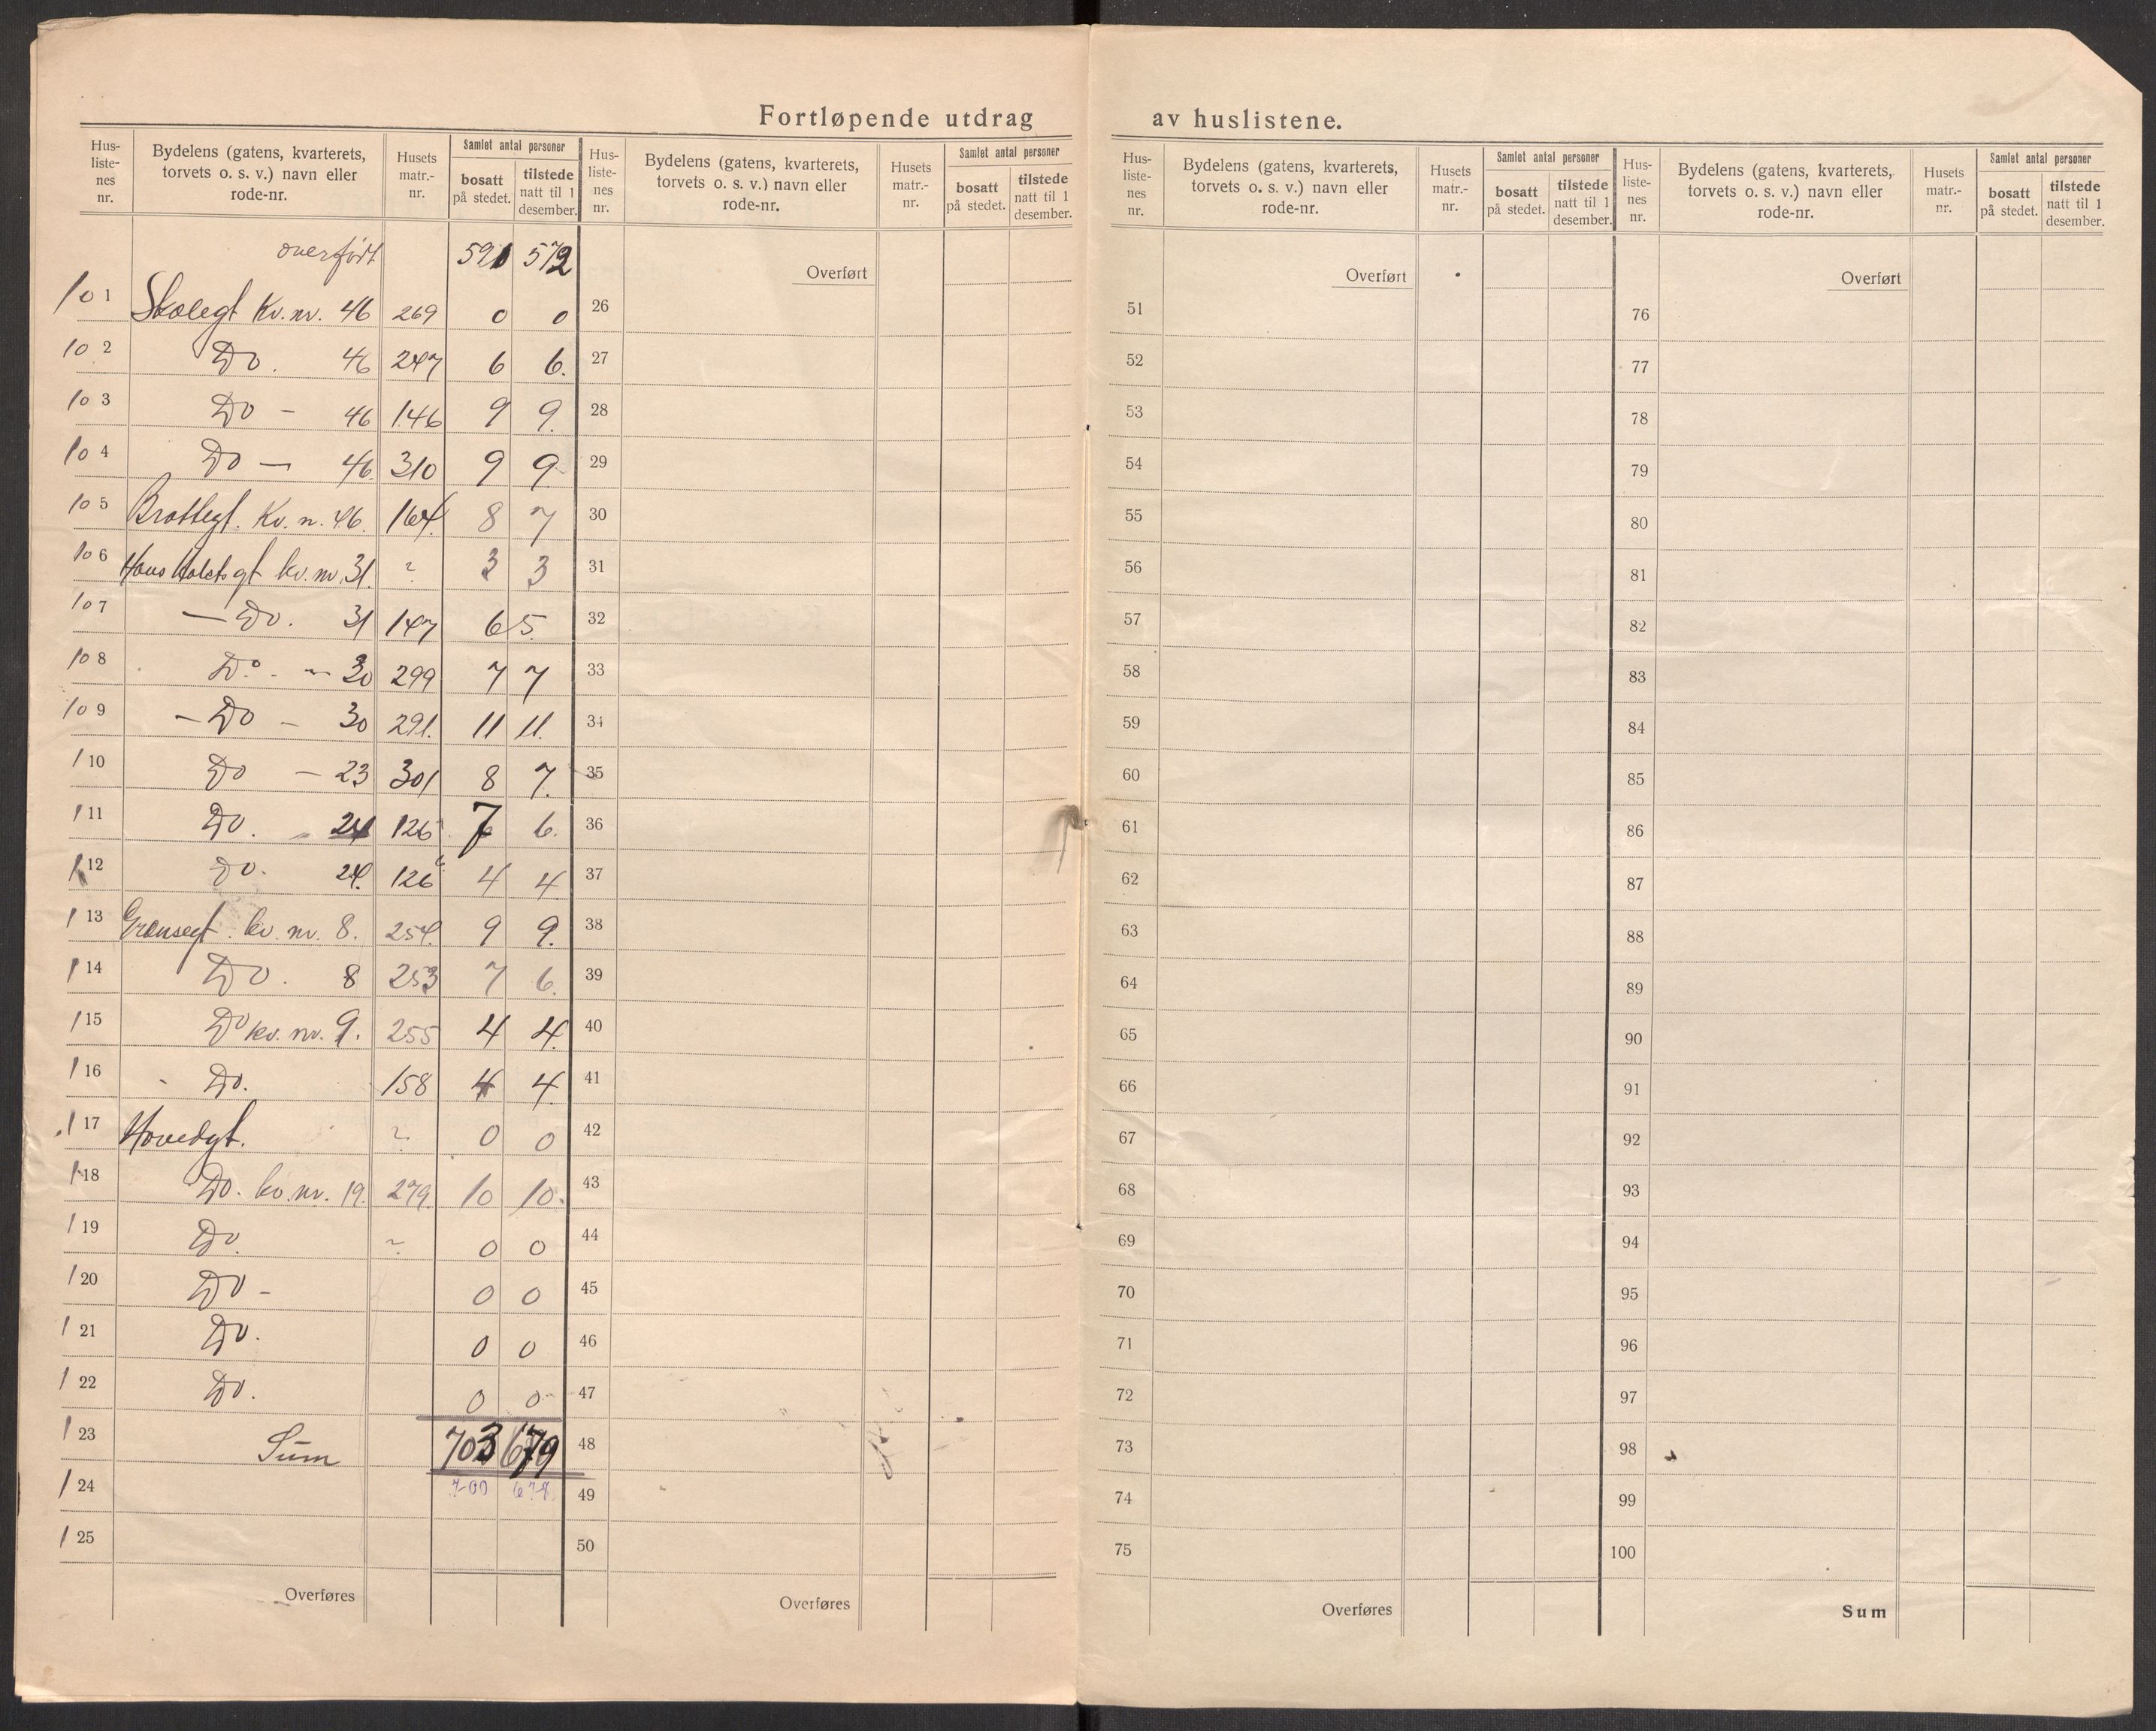 Fortløpende utdrag av huslistene.
Hus-liste-nes nr. Bydelens (gatens, kvarterets, torvets o. s. v.) navn eller rode-nr. Husets matr.-nr. Samlet antal personer bosatt på stedet. tilstede natt til 1 desember.
Hus-liste-nes nr. Bydelens (gatens, kvarterets, torvets o. s. v.) navn eller rode-nr. Husets matr.-nr. Samlet antal personer bosatt på stedet. tilstede natt til 1 desember.
Hus-liste-nes nr. Bydelens (gatens, kvarterets, torvets o. s. v.) navn eller rode-nr. Husets matr.-nr. Samlet antal personer bosatt på stedet. tilstede natt til 1 desember.
Hus-liste-nes nr. Bydelens (gatens, kvarterets, torvets o. s. v.) navn eller rode-nr. Husets matr.-nr. Samlet antal personer bosatt på stedet. tilstede natt til 1 desember.
overført 591 572
101 Skolegt Kv. nr. 46 269 0 0
102 Do. 46 247 6 6.
103 Do - 46 146 9 9.
104 Do — 46. 310 9 9.
105 Brattegt. Kv. n. 46. 164 8 7
106 gt kv. nr. 31. ? 3 3
107 — Do. 31 147 6 5.
108 Do. - 30 299 7 7
109 - Do - 30 291. 11 11.
110 Do — 23 301 8 7.
111 Do. 24 126 7 6.
112 Do. 24. 126 4 4
113 Grænsegt. kv. nr. 8. 254. 9 9.
114 Do. 8 253 7 6.
115 Do kv. nr. 9. 255 4 4.
116 Do. 158 4 4
117 Hovedgt. ? 0 0
118 Do. kv. nr. 19. 279. 10 10.
119 Do. ? 0 0
120 Do - 0 0
121 Do. 0 0
122 Do. 0 0
123 Sum 703 679
124 700 678
125
Overføres
Overført
26
27
28
29
30
31
32
33
34
35
36
37
38
39
40
41
42
43
44
45
46
47
48
49
50
Overføres
Overført
51
52
53
54
55
56
57
58
59
60
61
62
63
64
65
66
67
68
69
70
71
72
73
74
75
Overføres
Overført
76
77
78
79
80
81
82
83
84
85
86
87
88
89
90
91
92
93
94
95
96
97
98
99
100
Sum